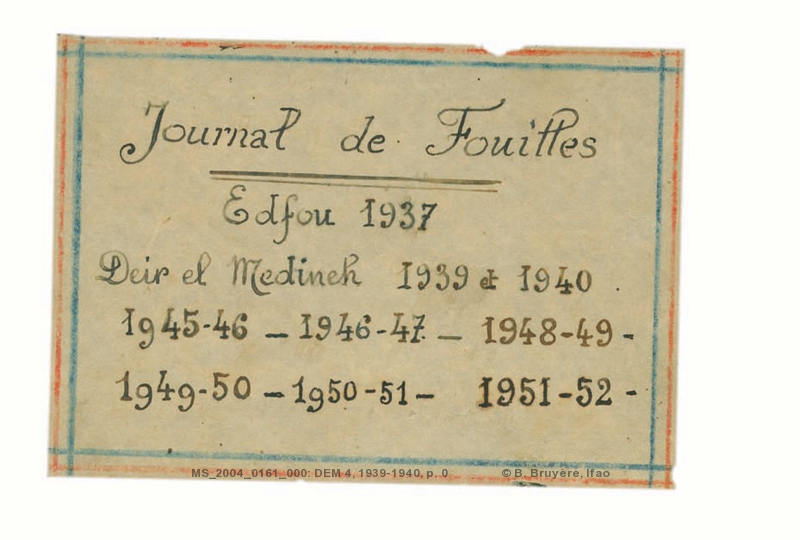 Journal de Fouilles
Edfou 1937
Deir el Medineh 1939 et 1940.
1945-46 — 1946-47 — 1948-49 -
1949-50 — 1950-51 — 1951-52 -
MS_2004_0161_000: DEM 4, 1939-1940, p. 0 © B. Bruyère, Ifao